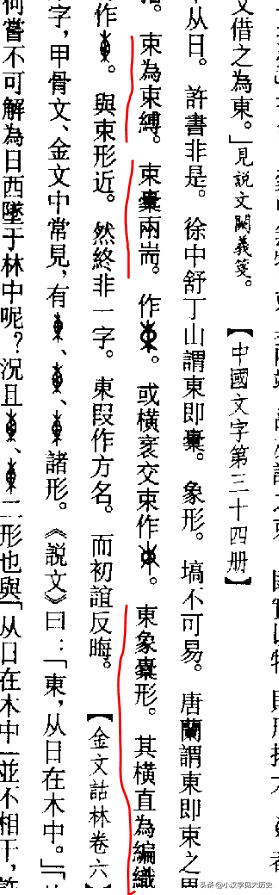 借之為東。」見説文闕義箋。【中國文字第三十四册】
从日。許書非是。徐中舒丁山謂東即橐。象形。塙不可易。唐蘭謂東即束之
束為束縛。束囊兩耑。作。或橫袤交束作。東象橐形。其橫直為編織
作。與束形近。然終非一字。東叚作方名。而初誼反晦。【金文詁林卷六】
字，甲骨文、金文中常見，有、、諸形。《説文》曰：「東，从日在木中。」
何嘗不可解為日西墜于林中呢？況且、二形也與「从日在木中」並不相干，許
头条 @小汉字见大历史